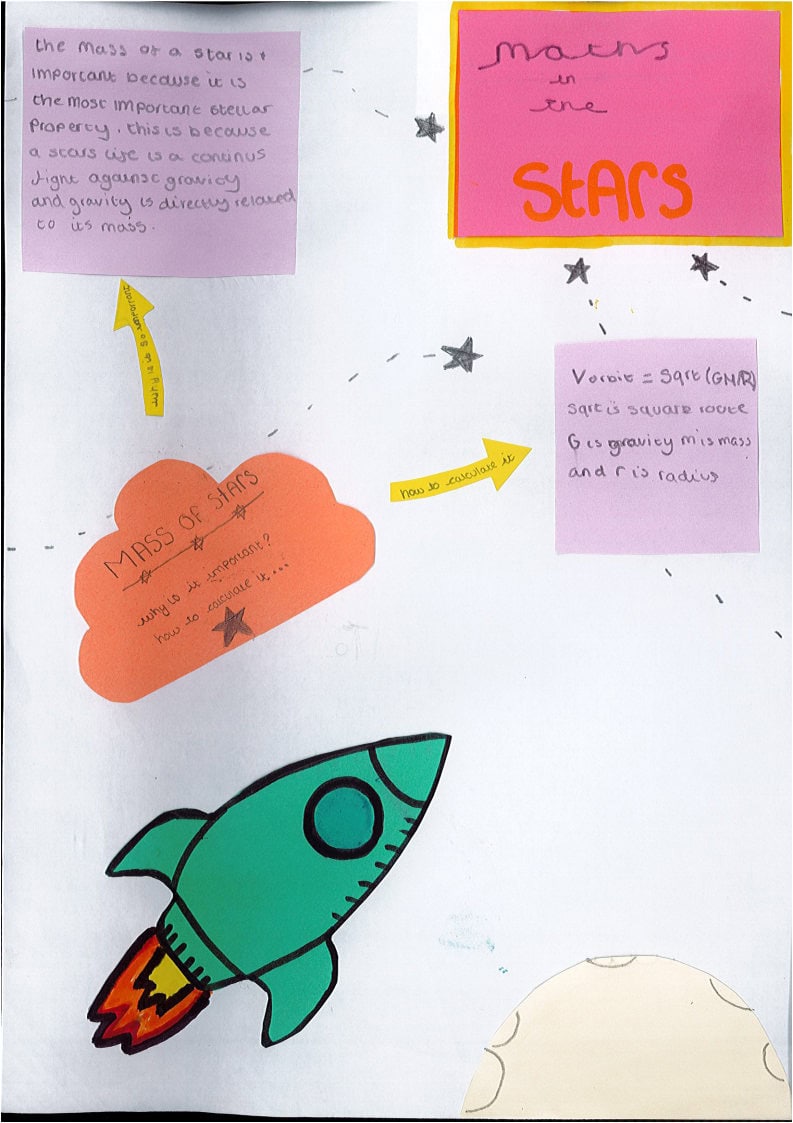 Maths
in
the
StARS
the mass of a star is
important because it is
the most important stellar
property. this is because
a stars life is a continus
fight against gravity
and gravity is directly related
to its mass.
why is it so important
MASS OF StARS
why is it important?
how to calculate it...
how to calculate it
Vorbit = Sqrt (GM/R)
Sqrt is square route
G is gravity m is mass
and r is radius